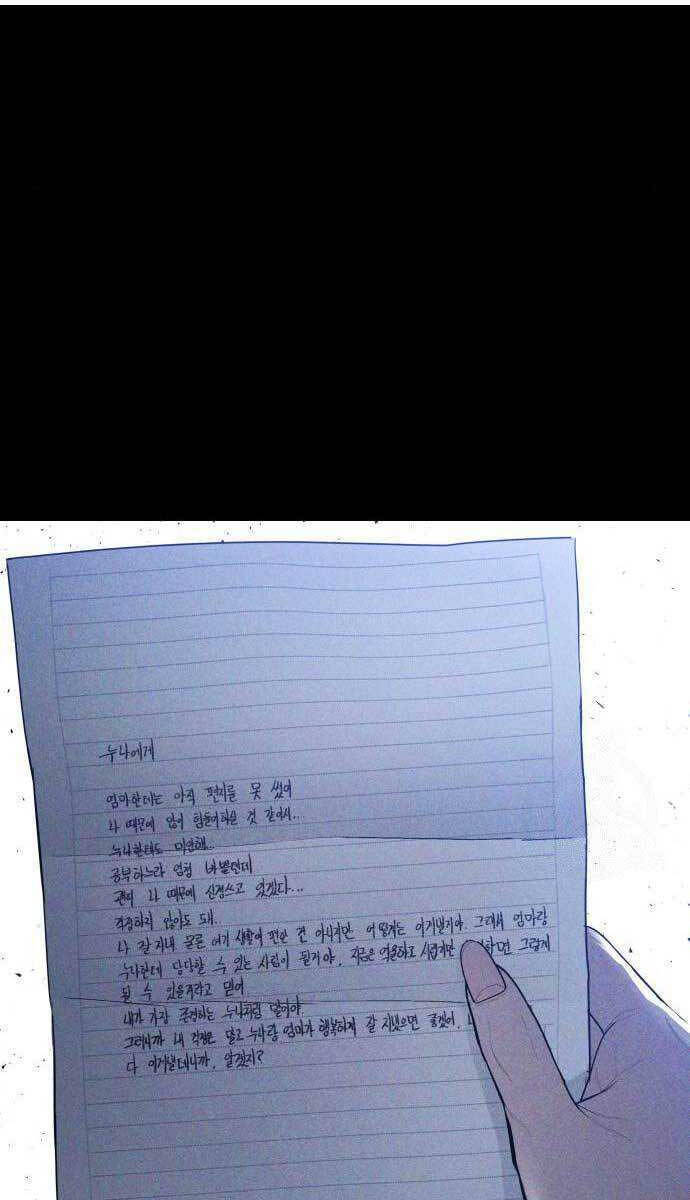 누나에게
엄마한테는 아직 편지를 못 썼어
나 때문에 많이 힘들어하실 것 같아서..
누나한테도 미안해..
공부하느라 엄청 바쁠텐데
괜히 나 때문에 신경쓰고 있겠다...
걱정하지 않아도 돼.
나 잘 지내 물론 여기 생활이 편한 건 아니지만 어떻게든 이겨낼거야. 그래서 엄마랑
누나한테 당당할 수 있는 사람이 될거야. 지금은 억울하고 하면 그렇게
될 수 있을거라고 믿어
내가 가장 존경하는 누나처럼 말이야
그러니까 내 걱정은 말고 누나랑 엄마가 행복하게 잘 지냈으면 좋겠어.
다 이겨낼테니까. 알겠지?